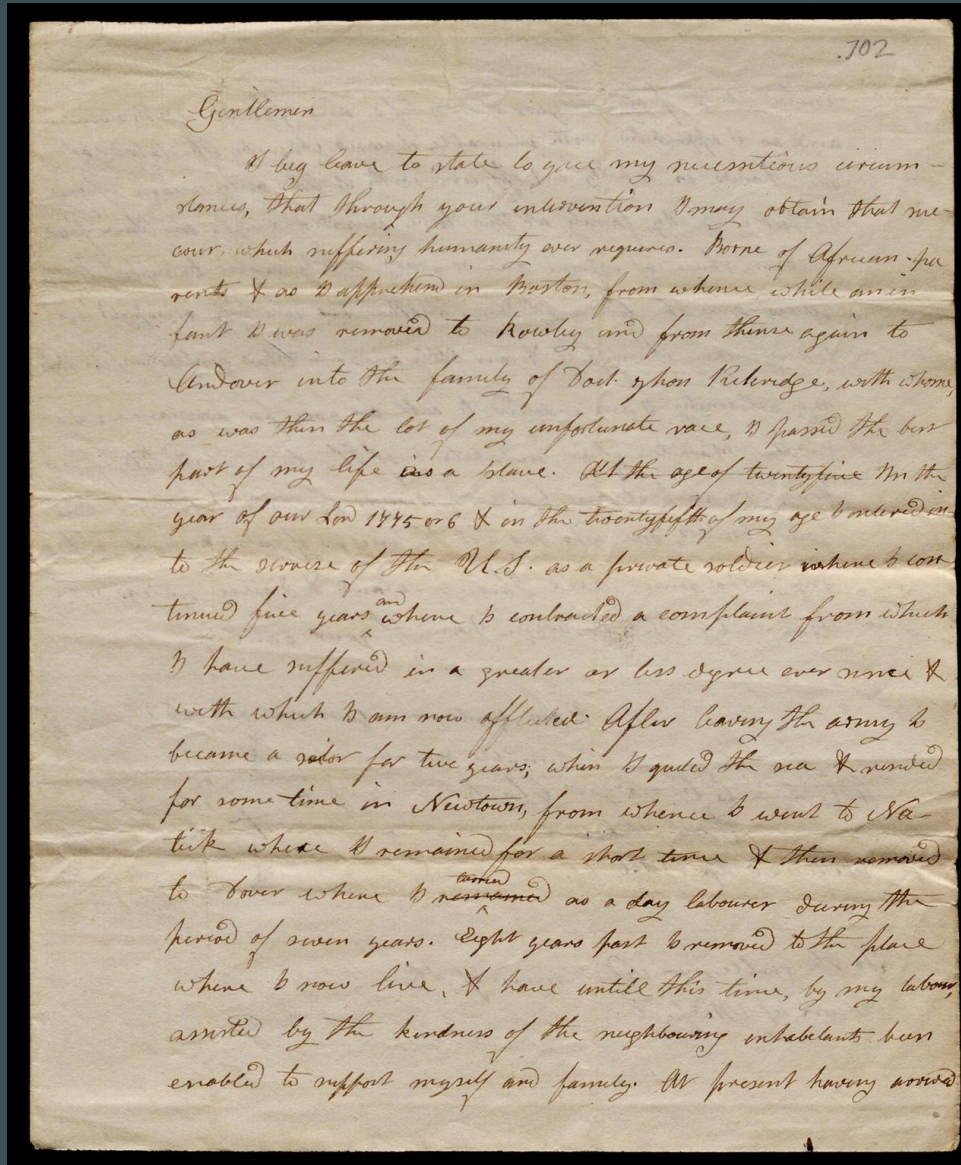 .702
Gentlemen
I beg leave to state to you my necessitious circum-
stances, that through your intervention I may obtain that suc-
cour, which suffering humanity ever requires. Borne of African pa
rents & as I apprehend in Boston, from whence while an in
fant I was removed to Rowley and from thense again to
Andover into the family of Doct. Kiteridge, with whome,
as was then the lot of my unfortunate race, I passed the best
part of my life as a slave. At the age of twentyfive In the
year of our Lord 1775 or 6 & in the twentyfifth of my age I entered in
to the service of the U.S. as a private soldier where I con
tinued five years and where I contracted a complaint from which
I have suffered in a greater or less degree ever since &
with which I am now afflicted. After leaving the army I
became a sailor for two years; when I quited the sea & resided
for some time in Newtown, from whence I went to Na-
tick where I remained for a short time & then removed
to Dover where I remained carried as a day labourer during the
period of seven years. Eight years past I removed to the place
where I now live, & have untill this time, by my labour,
assisted by the kindness of the neighbouring inhabitants been
enabled to support myself and family. At present having arrived